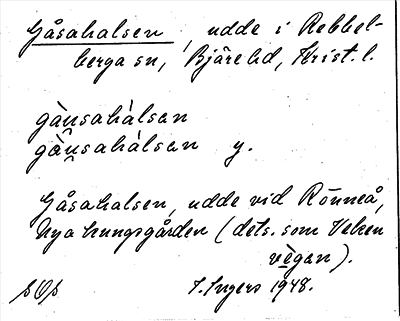 Gåsahalsen, udde i Rebbel-
berga sn, Bjäre hd, Krist. l.
gàu̯sahálsan
gàu̯sahálsan y.
Gåsahalsen, udde vid Rönneå,
Nya kungsgården (dets. som Veken
vègan).
I. Ingers 1948.